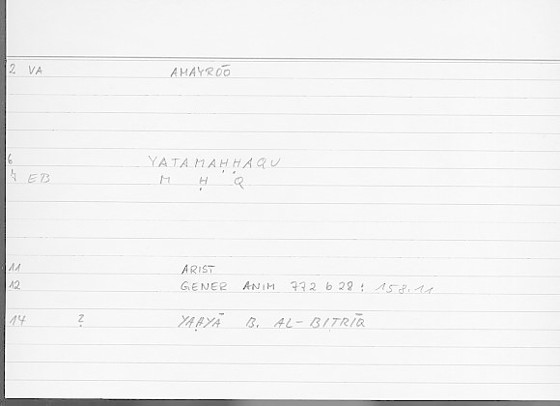 2 VA AMAYROŌ
6 YATAMAḤḤAQU
7 EB M Ḥ Q
11 ARIST
12 GENER ANIM 772 b 28 : 158.11
14 ? YAḤYĀ B. AL-BITRĪQ